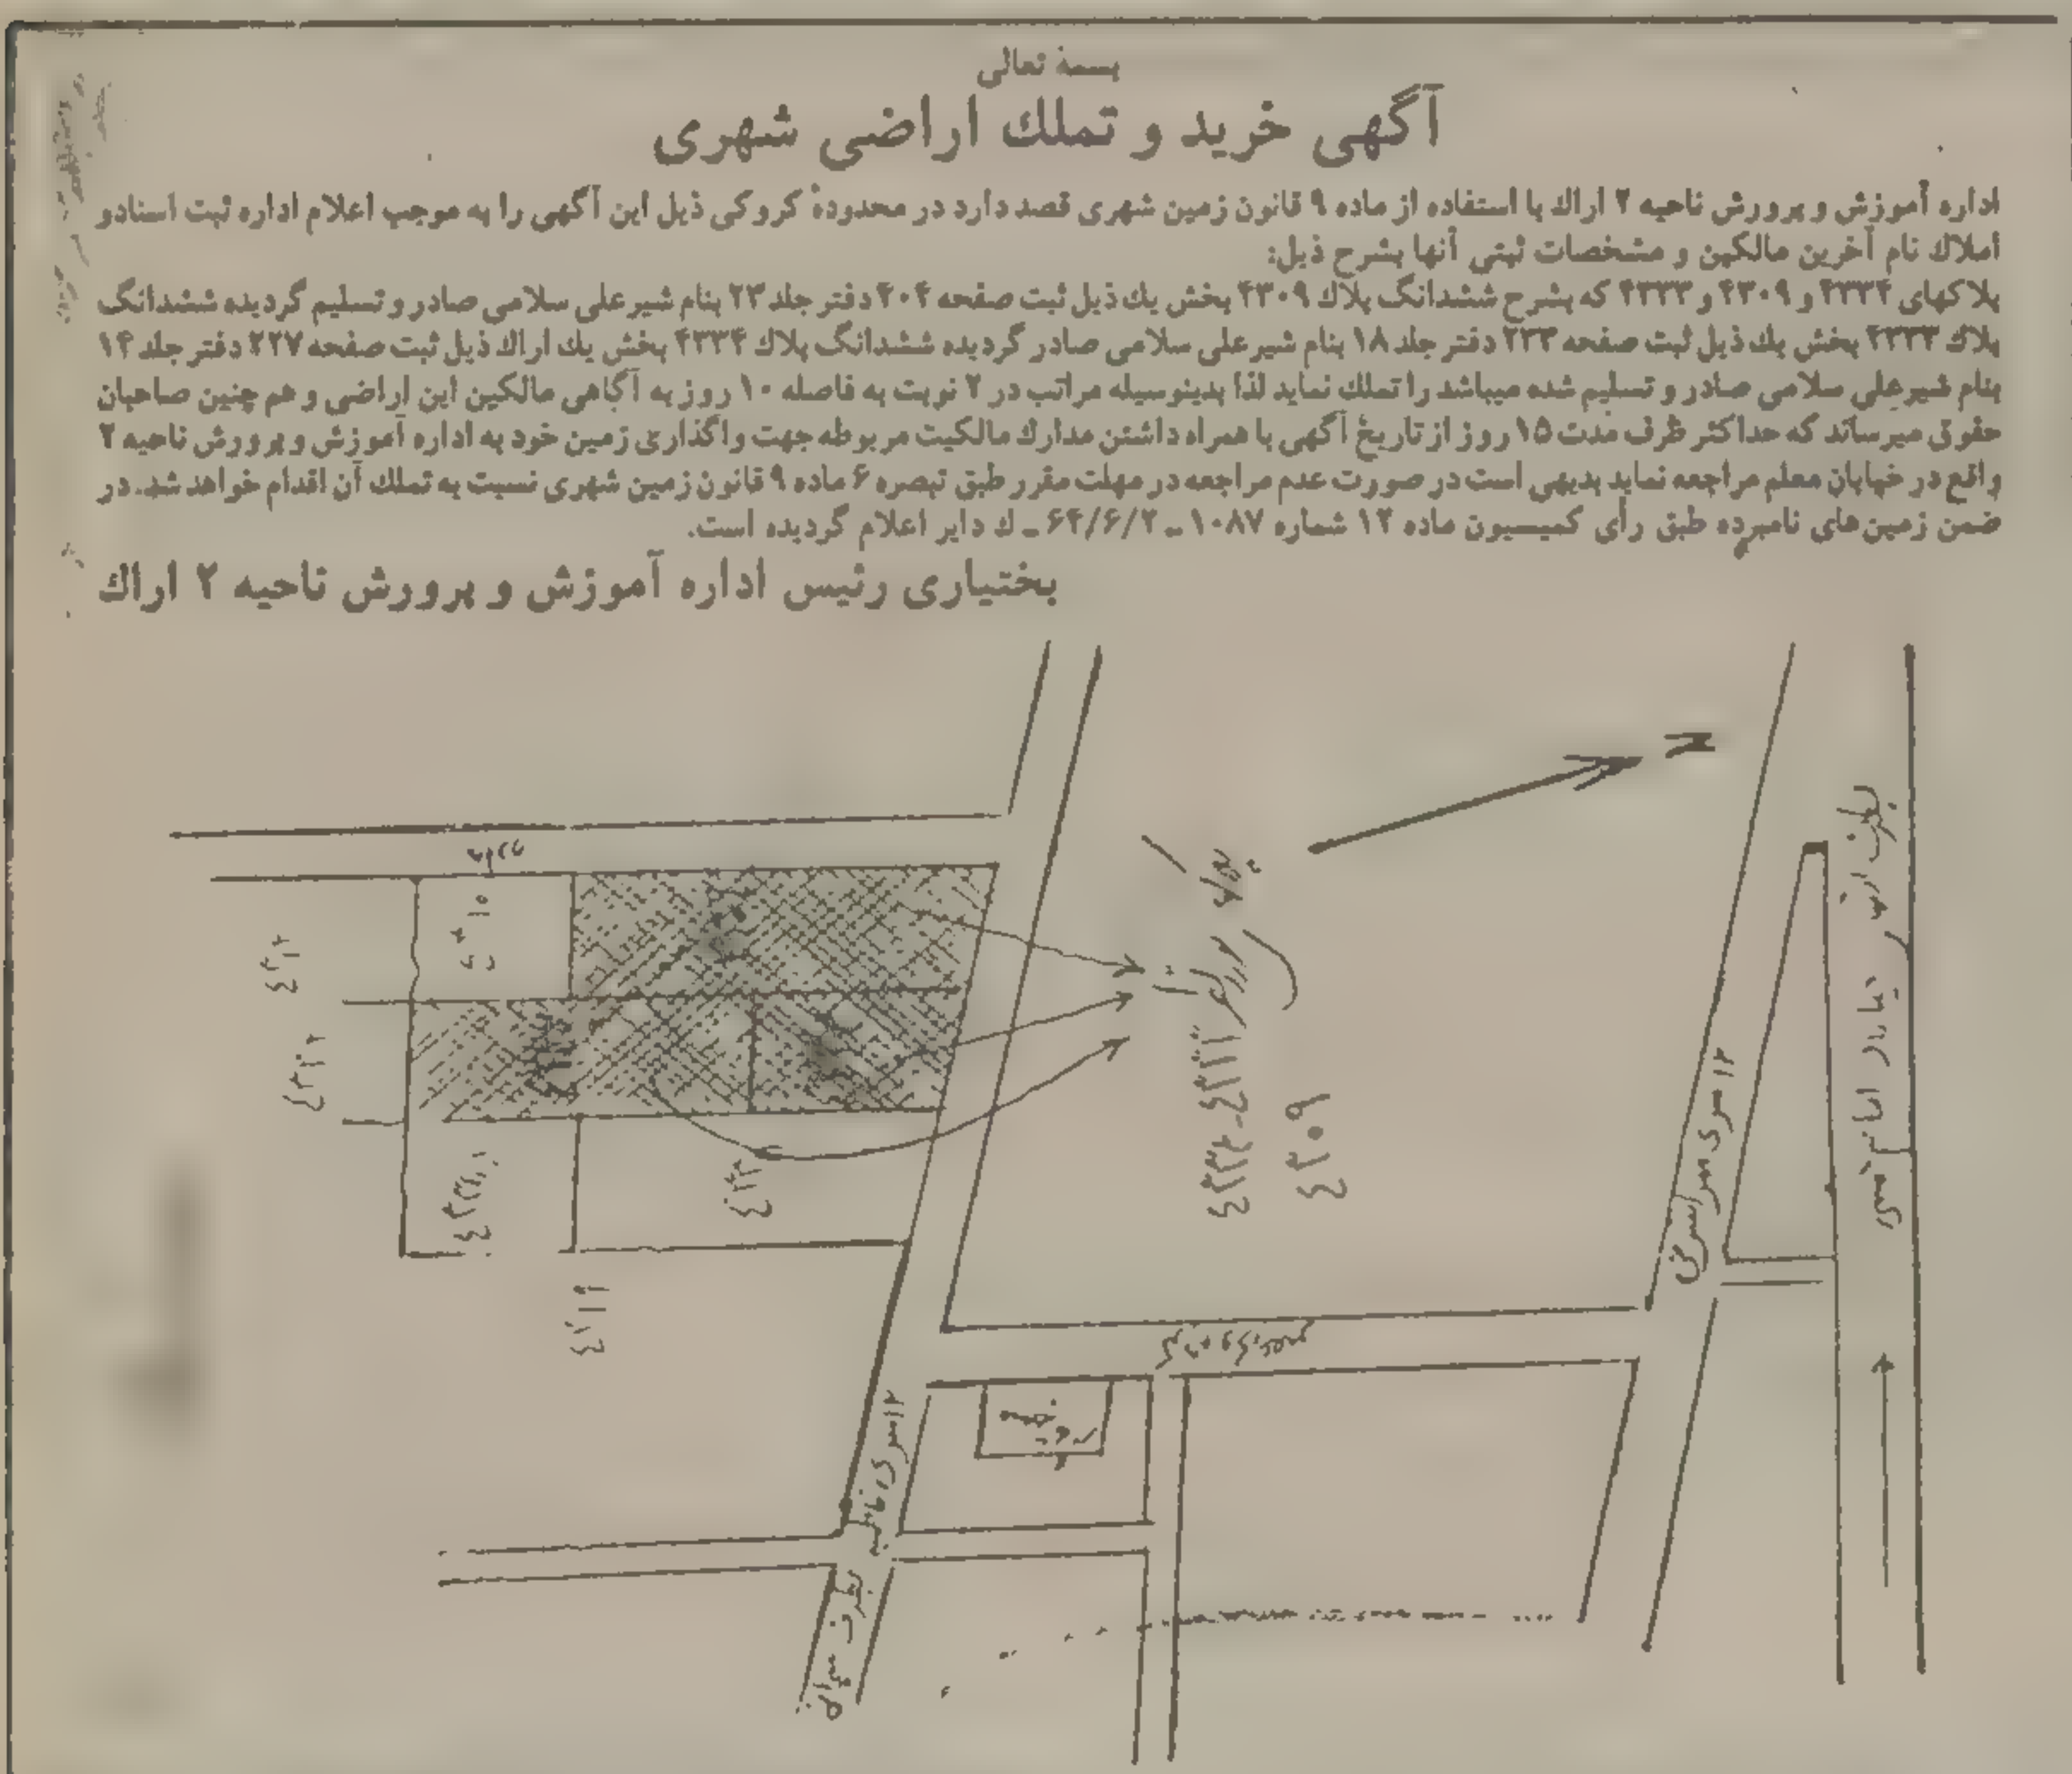 بسمهٔ تعالی
آگهی خرید و تملك اراضی شهری
اداره آموزش و پرورش ناحیه ۲ اراك با استفاده از ماده ۹ قانون زمین شهری قصد دارد در محدودهٔ کروکی ذیل این آگهی را به موجب اعلام اداره ثبت اسناد و
املاك نام آخرین مالکین و مشخصات ثبتی آنها بشرح ذیل:
پلاکهای ۴۳۳۴ و ۴۳۰۹ و ۴۳۳۳ که بشرح ششدانگ پلاك ۴۳۰۹ بخش یك ذیل ثبت صفحه ۴۰۴ دفتر جلد ۲۳ بنام شیرعلی سلامی صادر و تسلیم گردیده ششدانگ
پلاك ۴۳۳۳ بخش یك ذیل ثبت صفحه ۲۳۳ دفتر جلد ۱۸ بنام شیرعلی سلامی صادر گردیده ششدانگ پلاك ۴۳۳۴ بخش یك اراك ذیل ثبت صفحه ۲۲۷ دفتر جلد ۱۴
بنام شیرعلی سلامی صادر و تسلیم شده میباشد را تملك نماید لذا بدینوسیله مراتب در ۲ نوبت به فاصله ۱۰ روز به آگاهی مالکین این اراضی و هم چنین صاحبان
حقوق میرساند که حداکثر ظرف مدت ۱۵ روز از تاریخ آگهی با همراه داشتن مدارك مالکیت مربوطه جهت واگذاری زمین خود به اداره آموزش و پرورش ناحیه ۲
واقع در خیابان معلم مراجعه نماید بدیهی است در صورت عدم مراجعه در مهلت مقرر طبق تبصره ۶ ماده ۹ قانون زمین شهری نسبت به تملك آن اقدام خواهد شد. در
ضمن زمین‌های نامبرده طبق رأی کمیسیون ماده ۱۲ شماره ۱۰۸۷ ـ ۶۴/۶/۲ ـ ك دایر اعلام گردیده است.
بختیاری رئیس اداره آموزش و پرورش ناحیه ۲ اراك
N
۴۳۱۰
۴۳۳۴-۴۳۳۳
۴۳۰۹
۱۲ متری
بطرف